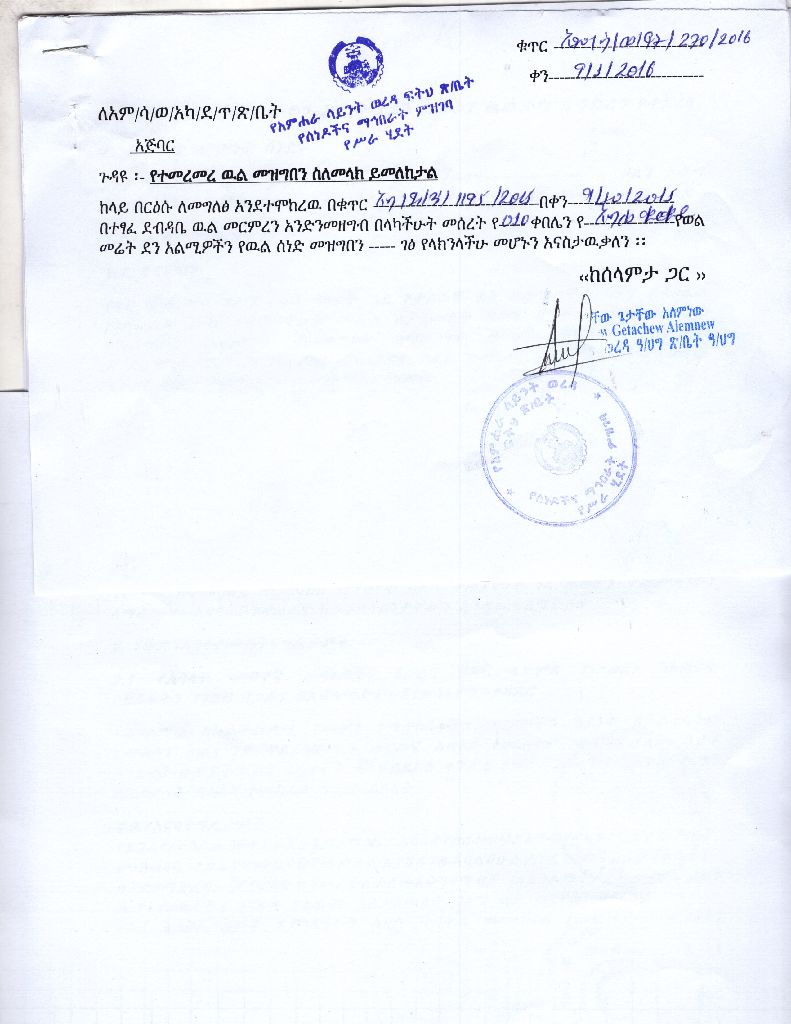 ቁጥር /220/2016
ቀን 9/1/2016
የአምሐራ ሳይንት ወረዳ ፍትህ ጽ/ቤት
የሰነዶችና ማኅበራት ምዝገባ
የሥራ ሂደት
ለአም/ሳ/ወ/አካ/ደ/ጥ/ጽ/ቤት
አጅባር
ጉዳዩ ፡- የተመረመረ ዉል መዝግበን ስለመላክ ይመለከታል
ከላይ በርዕሱ ለመግለፅ እንደተሞከረዉ በቁጥር /1195/2015 በቀን 9/10/2015
በተፃፈ ደብዳቤ ዉል መርምረን እንድንመዘግብ በላካችሁት መሰረት የ 010 ቀበሌን የ የወል
መሬት ደን አልሚዎችን የዉል ሰነድ መዝግበን ----- ገፅ የላክንላችሁ መሆኑን እናስታዉቃለን ፡፡
‹‹ከሰላምታ ጋር ››
ቸው ጌታቸው አለምነው
Getachew Alemnew
ወረዳ ዓ/ህግ ጽ/ቤት ዓ/ህግ
የአምሐራ ሳይንት ወረዳ
ፍትህ ጽ/ቤት
የሰነዶችና ማኅበራት ምዝገባ
የሥራ ሂደት